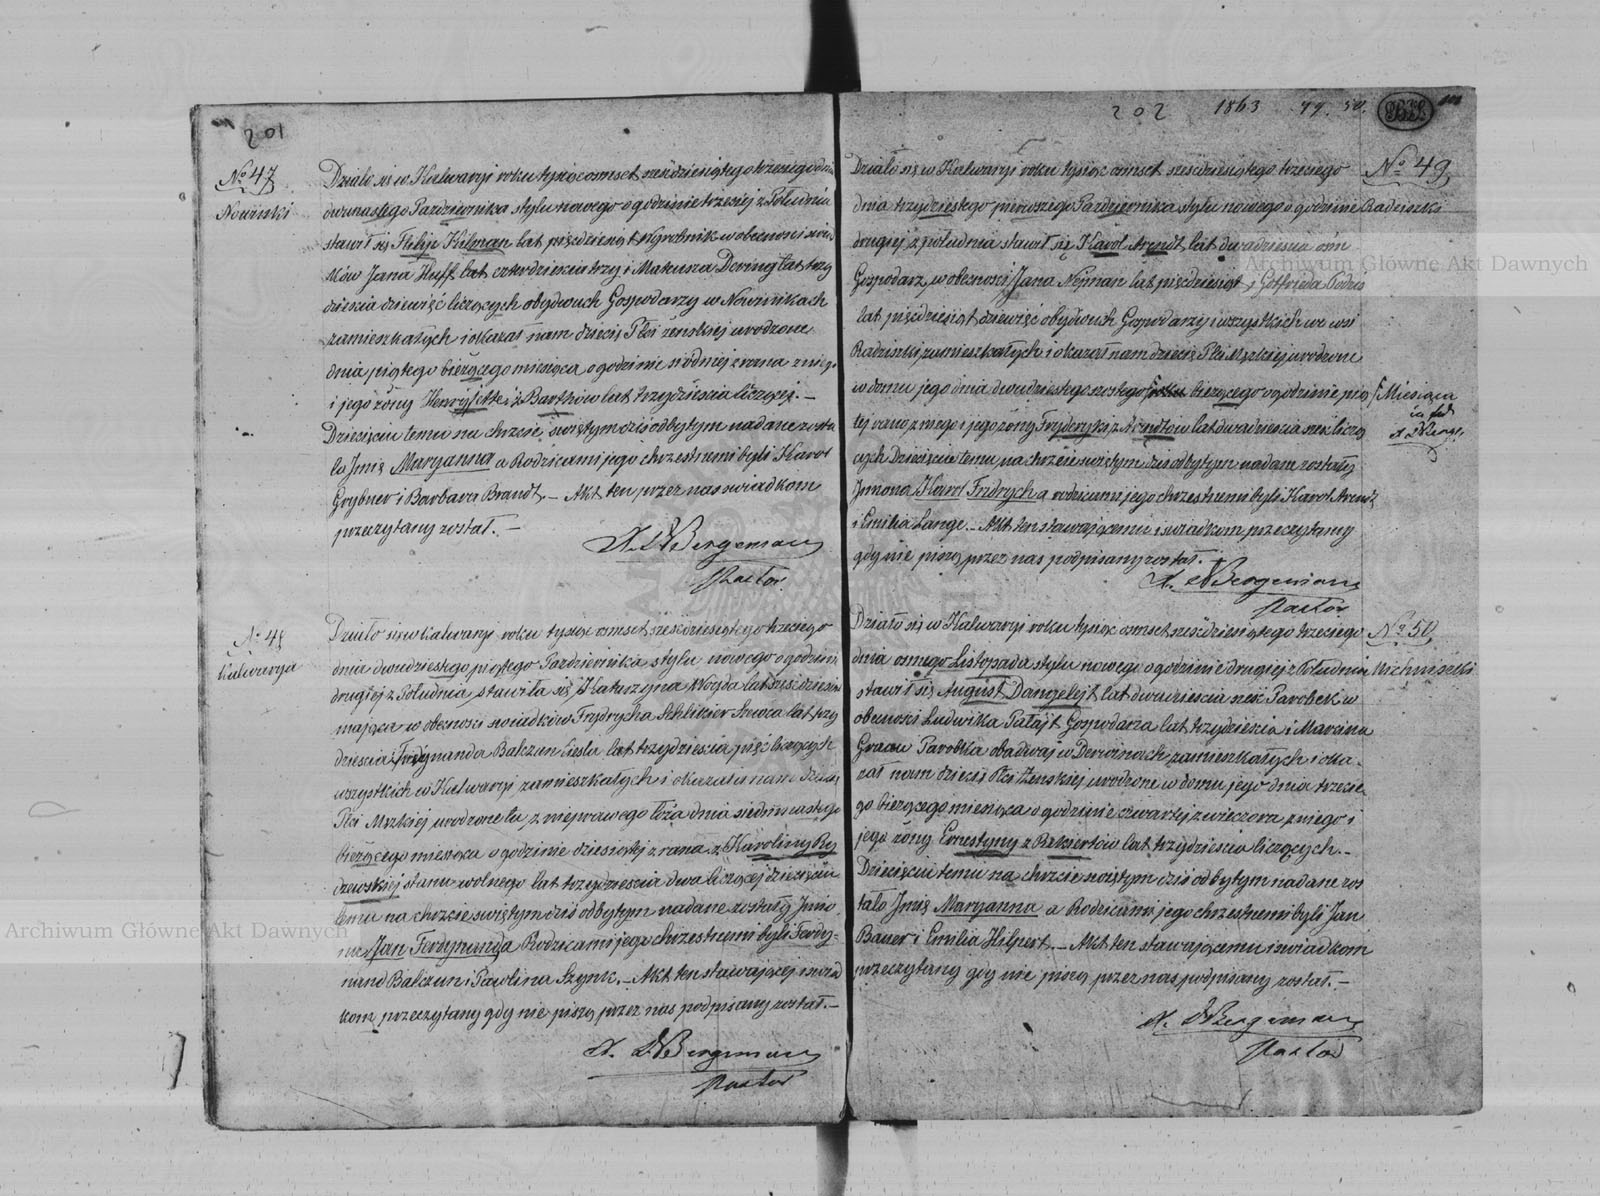 201
No 47
Nowinski
Działo się w Kalwaryi roku tysiąc osmset sześćdziesiątego trzeciego dnia
dwunastego Pazdziernika stylu nowego o godzinie trzeciej z Południa
stawił się Filip Kelman lat pięćdziesiąt Wyrobnik w obecnosci swiad
ków Jana Huff lat czterdziescia trzy i Mateusza Dering lat trzy
dziescia dziewięć liczących obydwuch Gospodarzy w Nowinikach
zamieszkałych i okazał nam dziecię Płci żenskiej urodzone
dnia piątego bieżącego miesiąca o godzinie siodmej z rana z niego
i jego żony Henryjetty z Bartków lat trzydziescia liczącej. —
Dziecięciu temu na chrzcie swiętym dziś odbytym nadane zosta
ło Jmię Maryanna a Rodzicami jego chrzestnemi byli Karol
Grybner i Barbara Brandt. — Akt ten przez nas swiadkom
przeczytany został. —
A. Bergeman
Pastor
No 48
Kalwarya
Działo się w Kalwaryi roku tysiąc osmset sześćdziesiątego trzeciego
dnia dwudziestego piątego Pazdziernika stylu nowego o godzinie
drugiej z Południa stawiła się Katarzyna Woyda lat sześćdziesiąt
mająca w obecnosci swiadków Frydrycha Schlikier Szwca lat trzy
dziescia i Ferdynanda Balczun Ciesla lat trzydziescia pięć liczących
wszystkich w Kalwaryi zamieszkałych i okazała nam dziecię
Płci Męzkiej urodzone tu z nieprawego łoża dnia siedmnastego
bieżącego miesiąca o godzinie dziesiątej z rana z Karoliny Ry
dzewskiej stanu wolnego lat trzydziescia dwa liczącej dziecięciu
temu na chrzcie swiętym dziś odbytym nadane zostały Jmio
na Jan Ferdynand a Rodzicami jego chrzestnemi byli Ferdy-
nand Balczun i Pawlina Szynk. — Akt ten stawającej i swiad
kom przeczytany gdy nie piszą przez nas podpisany został. —
A. Bergeman
Pastor
202 1863 49. 50.
No 49
Radziszki
Działo się w Kalwaryi roku tysiąc osmset sześćdziesiątego trzeciego
dnia trzydziestego pierwszego Pazdziernika stylu nowego o godzinie
drugiej z południa stawił się Karol Arendt lat dwadziescia osm
Gospodarz, w obecnosci Jana Nejman lat pięćdziesiąt i Gotfrieda
lat pięćdziesiąt dziewięć obydwuch Gospodarzy i wszystkich we wsi
Radziszki zamieszkałych i okazał nam dziecię Płci Męzkiej urodzone
w domu jego dnia dwudziestego szostego roku bieżącego o godzinie pią
Miesiąca
tej rano z niego i jego żony Fryderyki z Arndtów lat dwadziescia sześć liczą
cych Dziecięciu temu na chrzcie swiętym dziś odbytym nadane zostały
Jmiona Karol Fridrych a rodzicami jego chrzestnemi byli Karol Arendt
i Emilia Lange. — Akt ten stawającemu i swiadkom przeczytany
gdy nie piszą, przez nas podpisany został. —
A. Bergeman
Pastor
No 50
Działo się w Kalwaryi roku tysiąc osmset sześćdziesiątego trzeciego
dnia osmego Listopada stylu nowego o godzinie drugiej z Południa
stawił się August Danzelejt lat dwadziescia sześć Parobek w
obecnosci Ludwika Patajt Gospodarza lat trzydziescia i Marcina
Grau Parobka obadwaj w Derwinach zamieszkałych i oka-
zał nam dziecię Płci Żenskiej urodzone w domu jego dnia trzecie
go bieżącego miesiąca o godzinie czwartej z wieczora z niego i
jego żony Ernestyny z Reksertów lat trzydziescia liczących. —
Dziecięciu temu na chrzcie swiętym dziś odbytym nadane zos
tało Jmię Maryanna a Rodzicami jego chrzestnemi byli Jan
Bauer i Emilia Hilpert. — Akt ten stawającemu i swiadkom
przeczytany gdy nie piszą przez nas podpisany został. —
A. Bergeman
Pastor
Archiwum Główne Akt Dawnych
Archiwum Główne Akt Dawnych